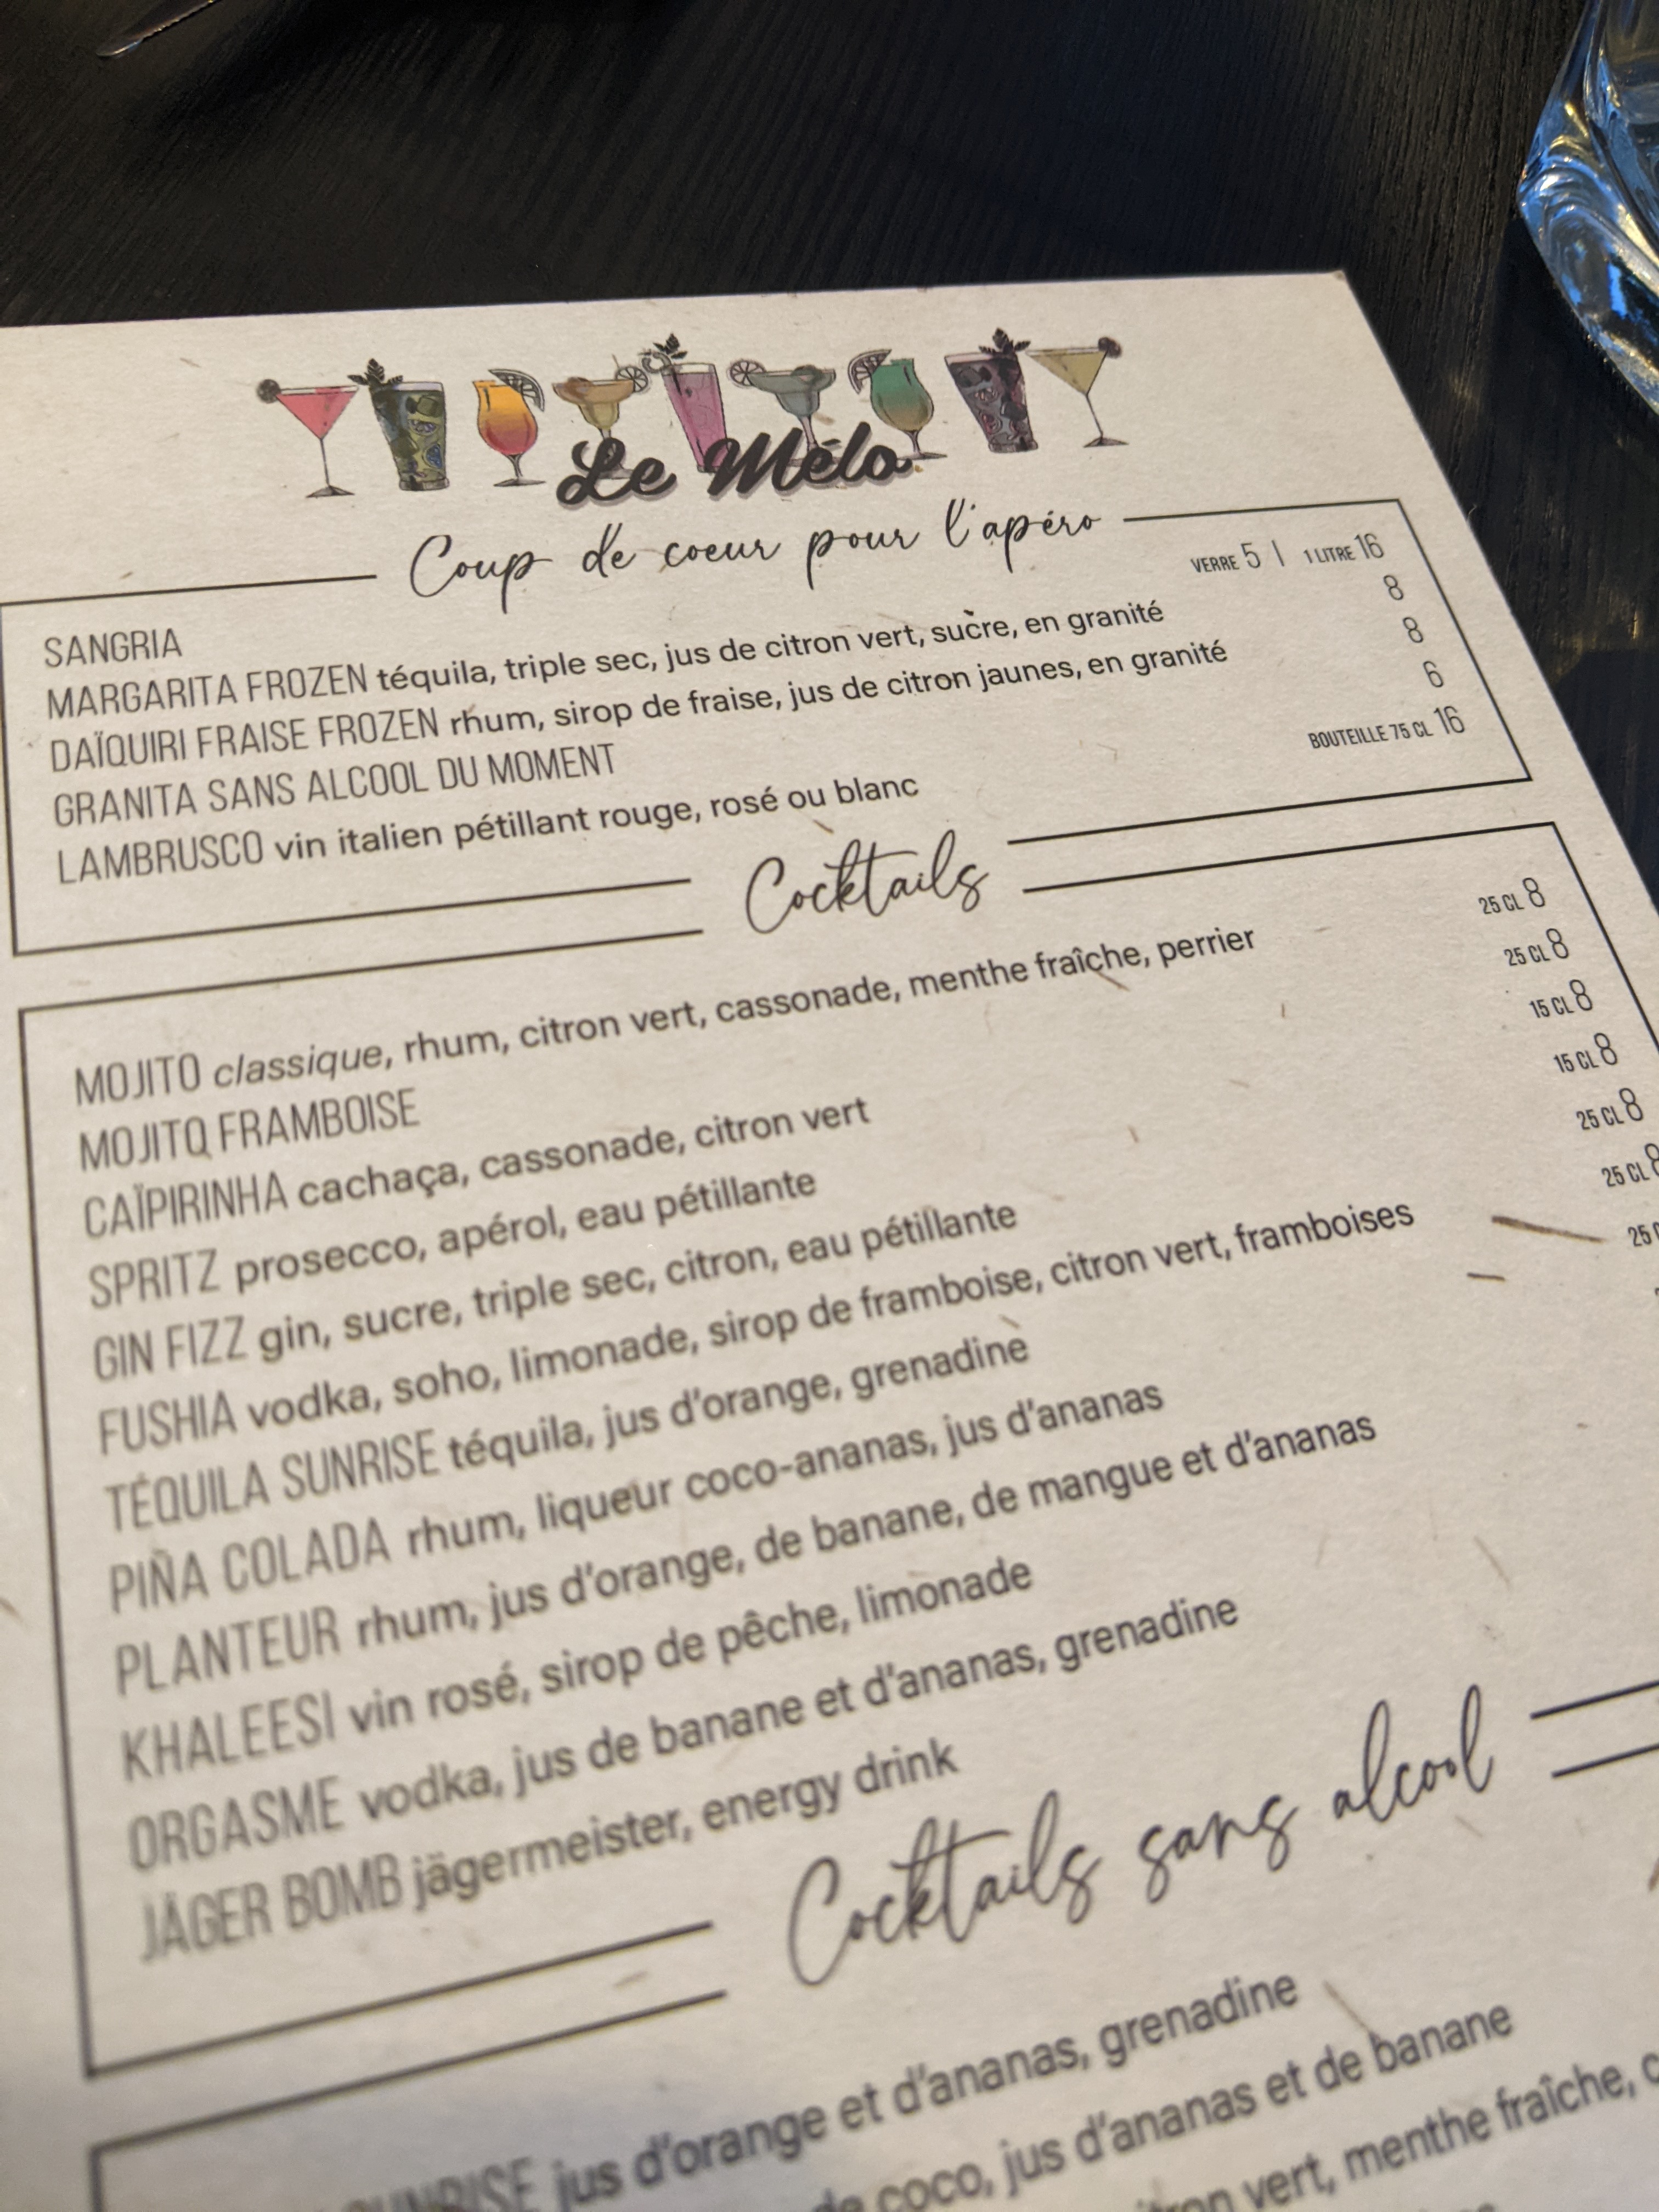 Le Mélo
Coup de coeur pour l'apéro
SANGRIA VERRE 5 | 1 LITRE 16
MARGARITA FROZEN téquila, triple sec, jus de citron vert, sucre, en granité 8
DAÏQUIRI FRAISE FROZEN rhum, sirop de fraise, jus de citron jaunes, en granité 8
GRANITA SANS ALCOOL DU MOMENT 6
LAMBRUSCO vin italien pétillant rouge, rosé ou blanc BOUTEILLE 75 CL 16
Cocktails
MOJITO classique, rhum, citron vert, cassonade, menthe fraîche, perrier 25 CL 8
MOJITO FRAMBOISE 25 CL 8
CAÏPIRINHA cachaça, cassonade, citron vert 15 CL 8
SPRITZ prosecco, apérol, eau pétillante 15 CL 8
GIN FIZZ gin, sucre, triple sec, citron, eau pétillante 25 CL 8
FUSHIA vodka, soho, limonade, sirop de framboise, citron vert, framboises 25 CL 8
TÉQUILA SUNRISE téquila, jus d'orange, grenadine 25
PIÑA COLADA rhum, liqueur coco-ananas, jus d'ananas
PLANTEUR rhum, jus d'orange, de banane, de mangue et d'ananas
KHALEESI vin rosé, sirop de pêche, limonade
ORGASME vodka, jus de banane et d'ananas, grenadine
JÄGER BOMB jägermeister, energy drink
Cocktails sans alcool
SUNRISE jus d'orange et d'ananas, grenadine
de coco, jus d'ananas et de banane
vert, menthe fraîche,